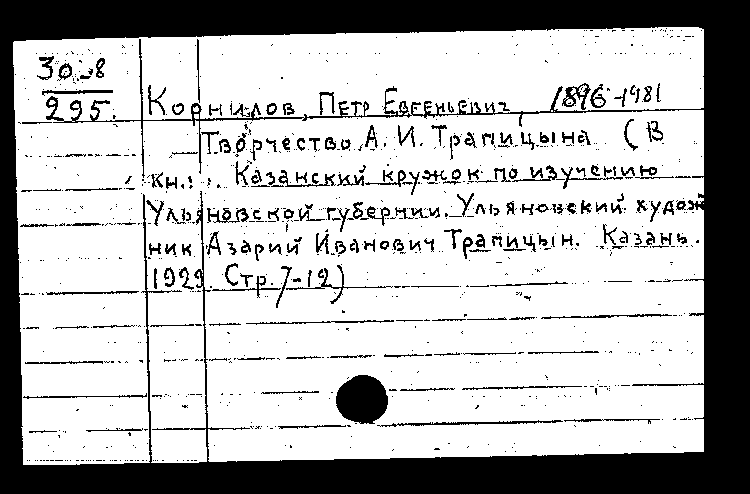 30-8
295.
Корнилов, Петр Евгеньевич, 1896-1981
Творчество А. И. Трапицына (В
кн.: Казанский кружок по изучению
Ульяновской губернии. Ульяновский худож
ник Азарий Иванович Трапицын. Казань.
1929. Стр. 7-12)